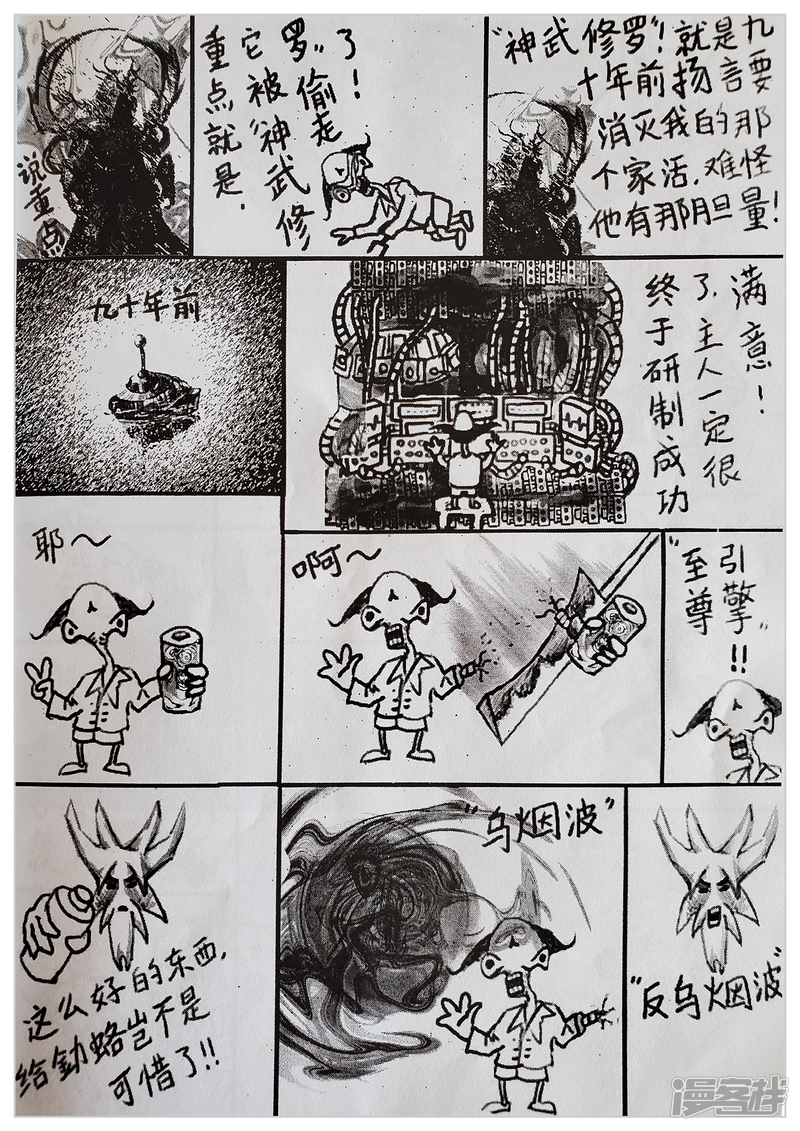 说重点
重点就是,
它被“神武修
罗”偷走
了!
“神武修罗”!就是九
十年前扬言要
消灭我的那
个家活,难怪
他有那胆量!
九十年前
终于研制成功
了,主人一定很
满意!
耶～
啊可～
“至尊
引擎”!!
这么好的东西,
给釛蛒岂不是
可惜了!!
“乌烟波”
“反乌烟波”
漫客栈